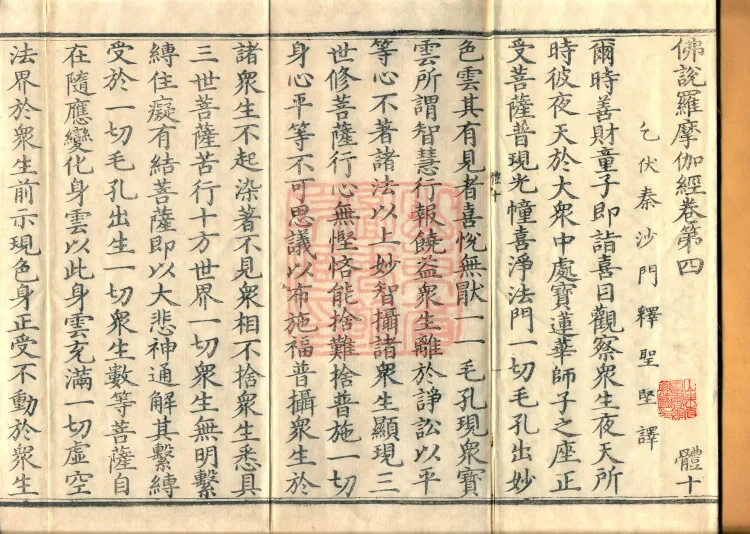 佛說羅摩伽經卷第四 體十
乞伏秦沙門釋聖堅譯
爾時善財童子即詣喜目觀察衆生夜天所
時彼夜天於大衆中處寶蓮華師子之座正
受菩薩普現光幢喜淨法門一切毛孔出妙
色雲其有見者喜悅無猒一一毛孔現衆寶
體十
雲所謂智慧行報饒益衆生離於諍訟以平
等心不著諸法以上妙智攝諸衆生顯現三
世修菩薩行心無慳悋能捨難捨普施一切
身心平等不可思議以布施福普攝衆生於
諸衆生不起染著不見衆相不捨衆生悉具
三世菩薩苦行十方世界一切衆生無明繫
縛住癡有結菩薩即以大悲神通解其繫縛
受於一切毛孔出生一切衆生數等菩薩自
在隨應變化身雲以此身雲充滿一切虛空
法界於衆生前示現色身正受不動於衆生